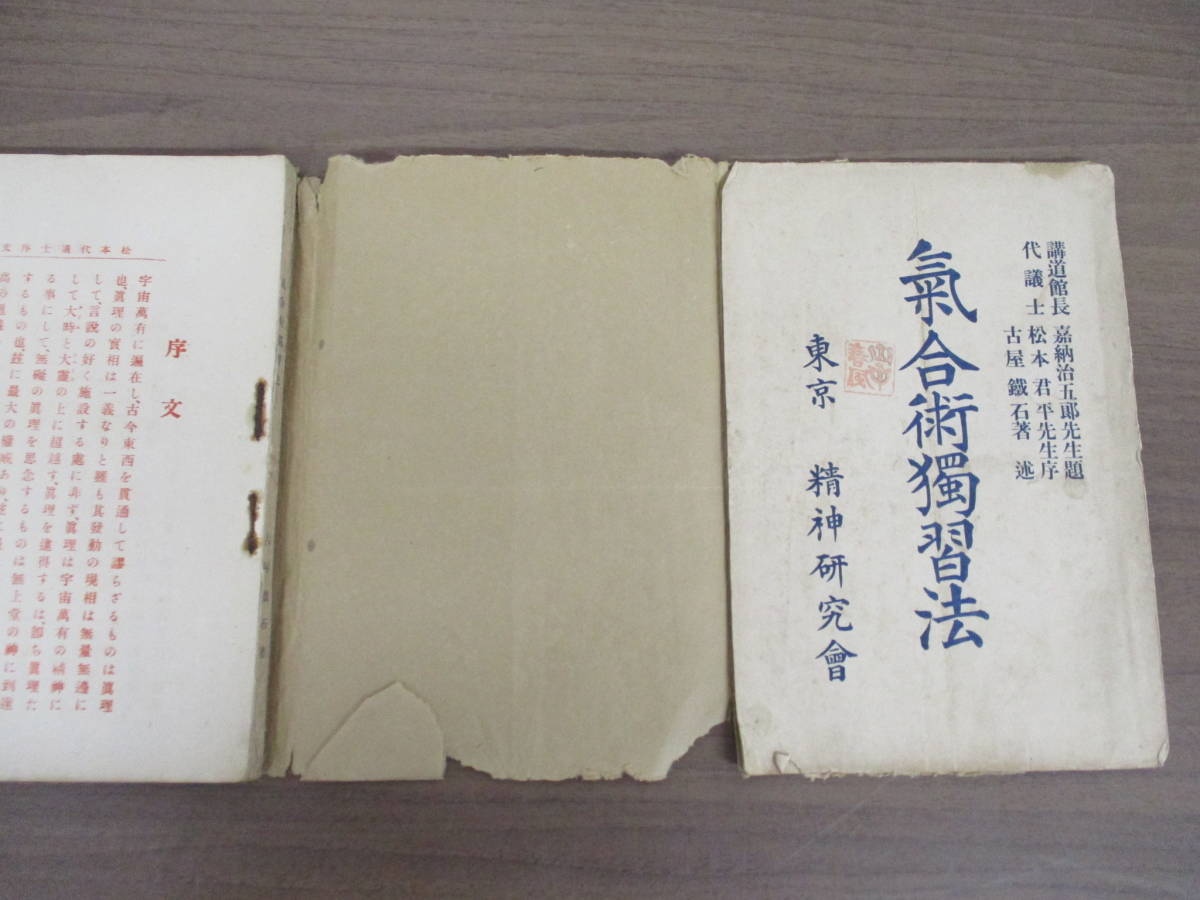 講道館長 嘉納治五郎先生題
代議士 松本君平先生序
古屋鐵石著述
氣合術獨習法
東京 精神研究會
松本代議士序文
序文
宇宙萬有に遍在し、古今東西を貫通して謬らざるものは眞理
也、眞理の實相は一義なりと雖も其發動の現相は無量無邊に
して、言說の好く施設する處に非ず、眞理は宇宙萬有の精神に
して大時と大憲の上に超越す、眞理を逮得するは、卽ち眞理た
る事にして、無礙の眞理を思念するものは無上堂の神に到達
するもの也、茲に最大の權威あり、